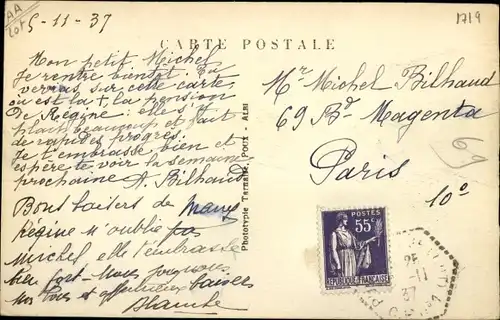 AA
Lot
5-11-37
1719
CARTE POSTALE
Mon petit Michel
Je rentre bientôt. Tu
verras sur cette carte
ou est la + la pension
de Régine: elle s'y
plait beaucoup et fait
de rapides progrès.
Je t'embrasse bien et
espère te voir la semaine
prochaine A. Bilhaud
Bons baisers de Mamy
Régine n'oublie pas
Michel elle l'embrasse
bien fort - Nous joignons
nos bons et affectueux baisers
Blanche
Phototypie Tarnaise, POUX - ALBI
Mr Michel Bilhaud
69 Bd Magenta
Paris
10°
69
POSTES
55c
REPUBLIQUE FRANÇAISE
25
11
37